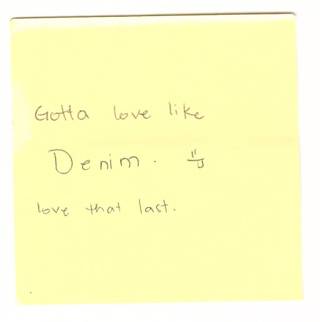 Gotta love like
Denim. =)
love that last.